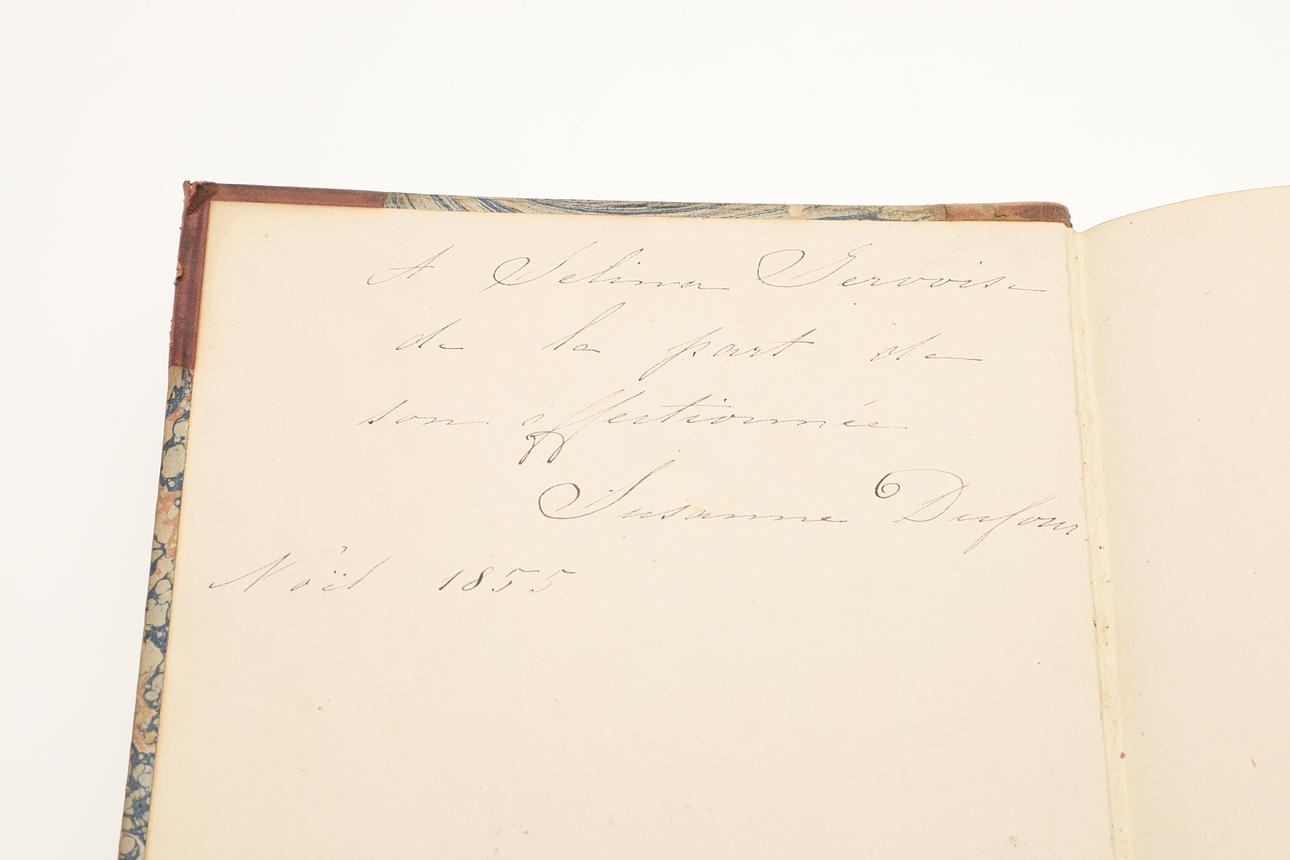 A Selina Gervoise
de la part de
son affectionnée
Susanne Dufour
Nöel 1855